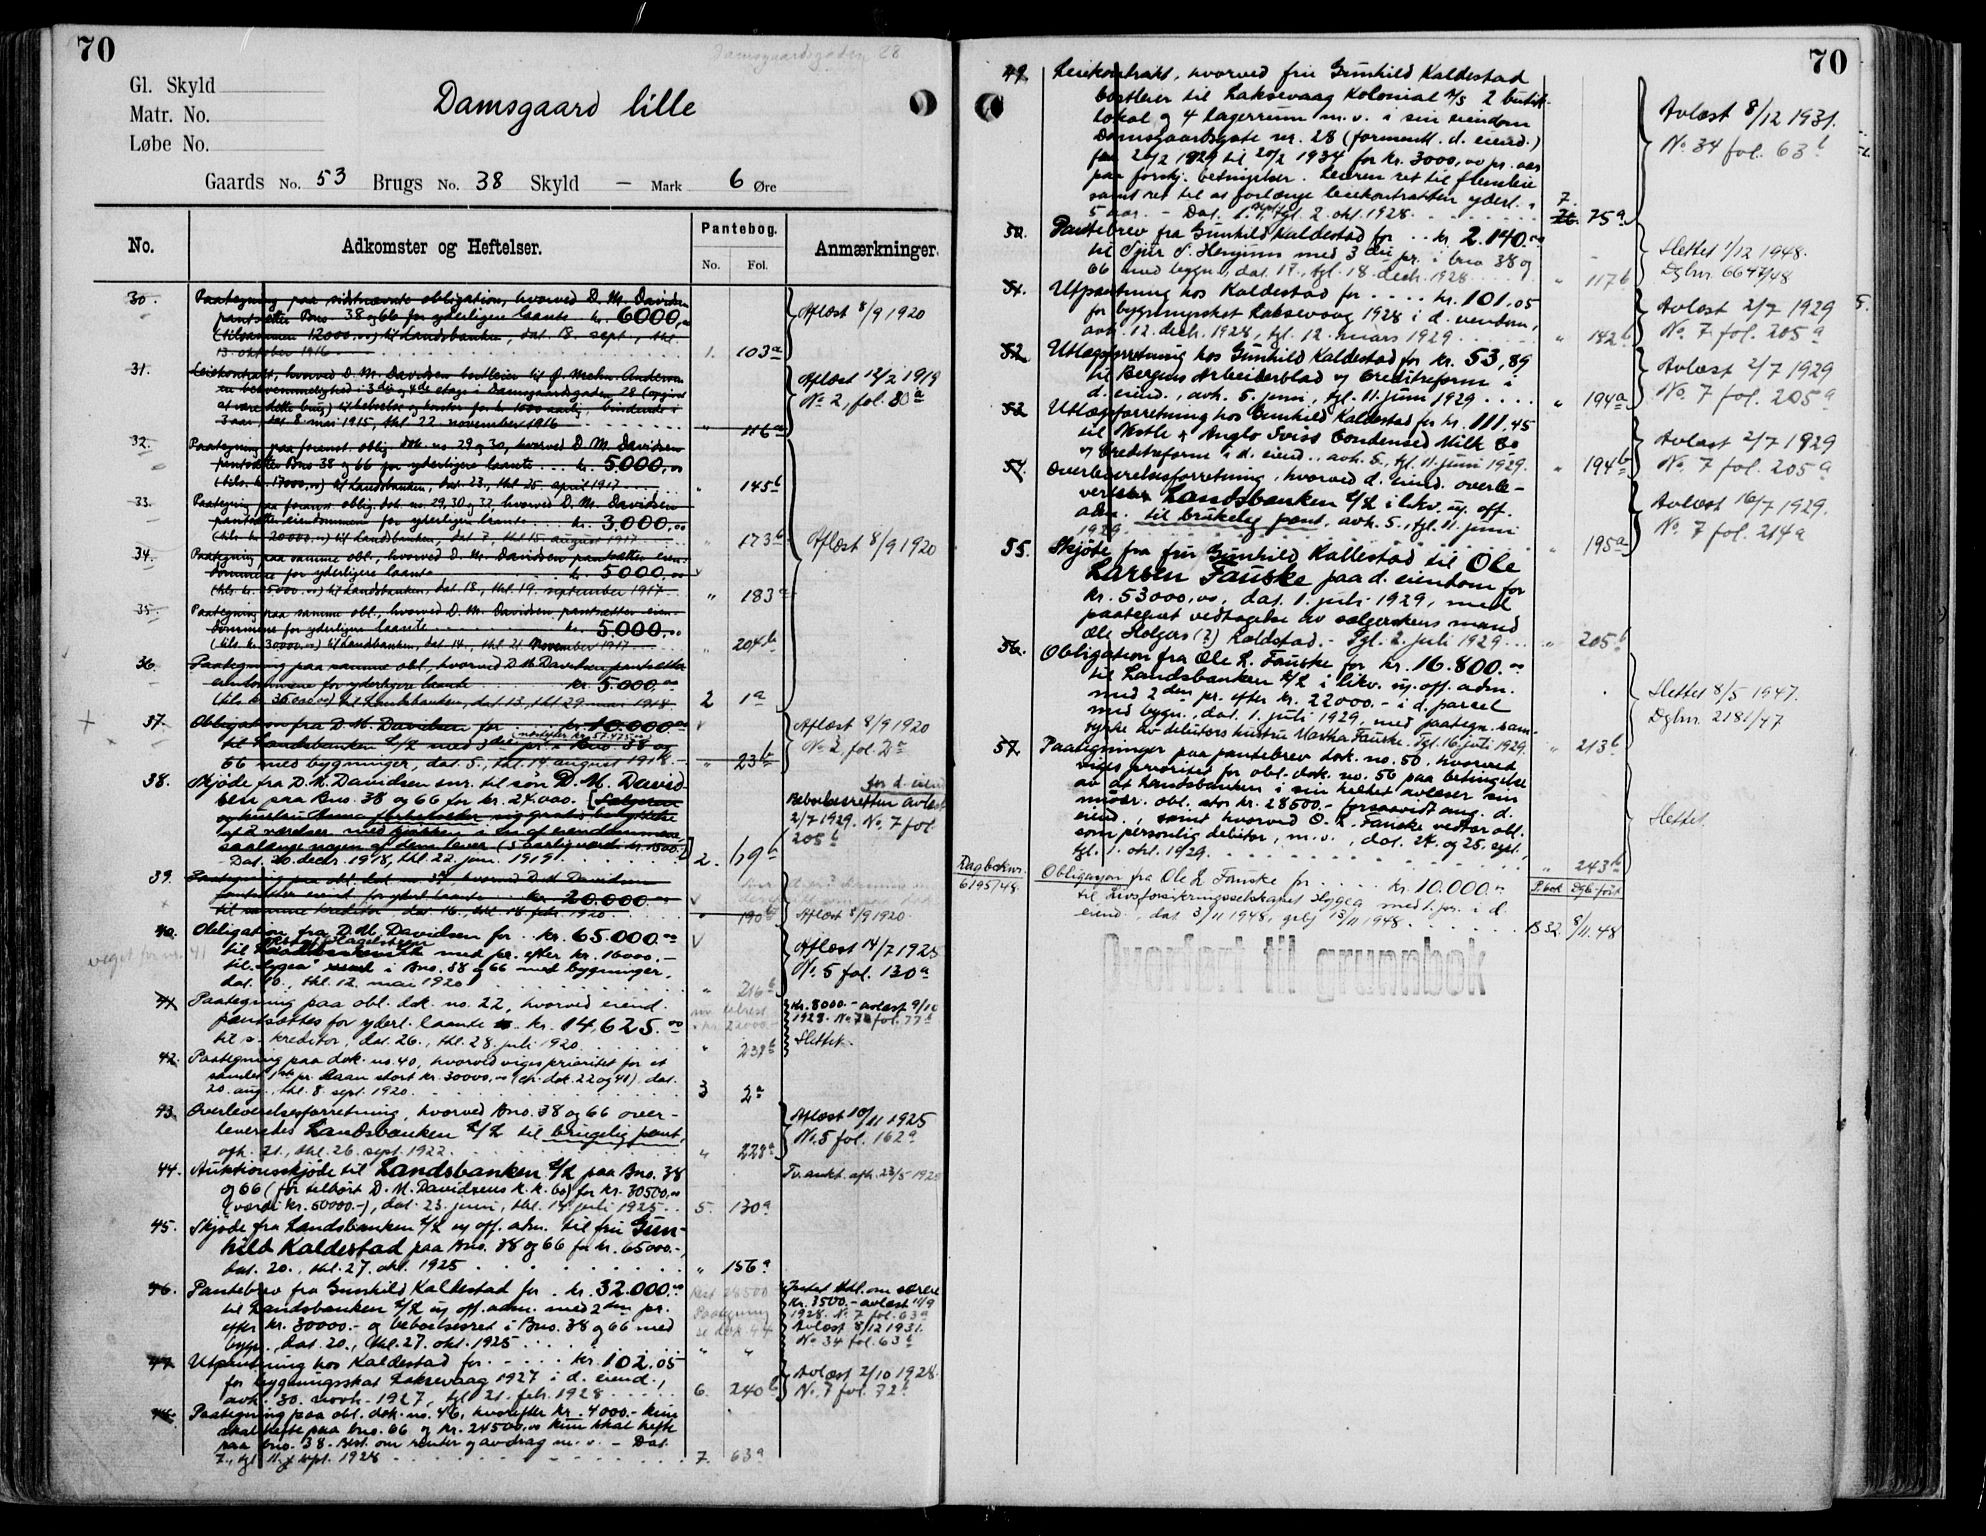 70
Damsgaardsgaden 28
Gl. Skyld
Matr. No.
Løbe No.
Damsgaard lille
Gaards No. 53 Brugs No. 38 Skyld — Mark 6 Øre
No. Adkomster og Heftelser. Pantebog. Anmærkninger.
No. Fol.
30. Paategning paa sidstnævnte obligation, hvorved D. M. Davidsen
pantsætter Bno. 38 og 66 for yderligere laante kr. 6000,00
(tilsammen 12000,00) til Landsbanken, dat. 18. sept., thl.
13. oktober 1916 1. 103a
Aflæst 8/9 1920
31. Leiekontrakt, hvorved D. M. Davidsen bortleier til J. Mechn. Andersen
en bekvemmelighed i 3die og 4de etage i Damsgaardsgaden 28 (opgivet
at være dette brug) til beboelse og kontor for kr. 1000 aarlig, bindende i
3 aar, dat. 8. mai 1915, thl. 22. november 1916 " 116a
Aflæst 12/2 1919
No 2, fol. 80a
32. Paategning paa foranst. oblig. dok. no. 29 og 30, hvorved D. M. Davidsen
pantsætter Bno. 38 og 66 for yderligere laante ... kr. 5000,00
(tils. kr. 17000,00) til Landsbanken, dat. 23., thl. 25. april 1917 " 145b
33. Paategning paa foranst. oblig. dok. no. 29, 30 og 32, hvorved D. M. Davidsen
pantsætter eiendommene for yderligere laante kr. 3.000,00
(tils. kr. 20000,00) til Landsbanken, dat. 7., thl. 15. august 1917 " 173b
Aflæst 8/9 1920
34. Paategning paa samme obl., hvorved D. M. Davidsen pantsætter eien-
dommene for yderligere laante kr. 5000,00
(tils. kr. 25000,00) til Landsbanken, dat. 18., thl. 19. september 1917 " 183a
35. Paategning paa samme obl., hvorved D. M. Davidsen pantsætter eien-
dommene for yderligere laante kr. 5.000,00
(tils. kr. 30000,00) til Landsbanken, dat. 14., thl. 21. November 1917 " 204b
36. Paategning paa samme obl., hvorved D. M. Davidsen pantsætter
eiendommene for yderligere laante kr. 5.000,00
(tils. kr. 35000,00) til Landsbanken, dat. 13., thl. 29. mai 1918 2 1a
37. Obligation fra D. M. Davidsen for kr. 10.000,00
til Landsbanken A/S med pr. i Bno. 38 og
66 med bygninger, dat. 5., thl. 14. august 1918 " 23b
Aflæst 8/9 1920
No. 2, fol. 2a
38. Skjøde fra D. M. Davidsen snr. til søn D. M. David-
sen paa Bno. 38 og 66 for kr. 27.000. [Sælgeren
og hustru Anna forbeholder sig gratis benyttelse
af 2 værelser med kjøkken i en af eiendommene
saalænge nogen af dem lever (5 aarlig værdi kr. 1500.-)]
- Dat. 20. decbr. 1918, thl. 22. jan. 1919. 2. 79b
for d. eiend.
Beboelsesretten avlæst
2/7 1929. No. 7 fol.
205b
39. Paategning paa obl. dok. no 37, hvorved D. M. Davidsen
pantsætter eiend. for yderl. laante kr. 20.000,00
til samme kreditor, dat. 16., thl. 18. febr. 1920 " 190b
Aflæst 8/9 1920.
40. Obligation fra D. M. Davidsen for kr. 65.000,00
til Landsbanken A/S med pr. efter kr. 16000.-
til "Hygea" i Bno. 38 og 66 med bygninger,
dat. 10., thl. 12. mai 1920 " 216b
Aflæst 14/7 1925
No. 5 fol. 130a
viget for nr. 41
41. Paategning paa obl. dok. no. 22, hvorved eiend.
pantsættes for yderl. laante kr. 14,625.00
til s. kreditor, dat. 26., thl. 28. juli 1920 " 239b
kr. 8000.- avlæst 9/10
1928. No 7 fol. 77b
Slettet.
42. Paategning paa dok. no. 40, hvorved viges prioritet for et
samlet 1ste pr. laan stort kr. 30000,00 (cfr. dok. 22 og 41). dat.
20. aug., thl. 8. sept. 1920 3 2a
43. Overleverelsesforretning, hvorved Bno. 38 og 66 over-
leveredes Landsbanken A/S til brugelig pant,
afh. 21., thl. 26. sept. 1922 " 228a
Aflæst 10/11 1925
No. 5 fol. 162a
44. Auktionsskjøde til Landsbanken A/S paa Bno. 38
og 66 (før tilhørt D. M. Davidsens k. k. bo) for kr. 30500,00
(værdi kr. 50000.-), dat. 23. juni, thl. 14. juli 1925 5. 130a
Tv. aukt. afh. 23/5 1925
45. Skjøde fra Landsbanken A/S u. off. adm. til fru Gun-
hild Kaldestad paa Bno. 38 og 66 for kr. 65000.-,
dat. 20., thl. 27. okt. 1925 " 156a
46. Pantebrev fra Gunhild Kaldestad for kr. 32.000,00
til Landsbanken A/S u. off. adm. med 2den pr.
efter kr. 30000.- og beboelsesret i Bno. 38 og 66 med
bygn., dat. 20., thl. 27. okt. 1925 " "
rest 28500
Paategning
se dok 44
kr. 3500.- avlæst 11/9
1928. No. 7 fol. 63a
Avlæst 8/12 1931.
No 34 fol. 63b
47. Utpantning hos Kaldestad for kr. 102.05
for bygningsskat Laksevaag 1927 i d. eiend.,
avh. 30. novb. 1927, tgl. 21. febr. 1928 6. 240b
Avlæst 2/10 1928.
No. 7 fol. 72b
48. Paategning paa obl. dok. no. 46, hvorefter kr. 4000.- kun
skal hefte paa bno. 66 og kr. 24500,00 kun skal hefte
paa bno. 38. Best. om renter og avdrag m. v. - Dat.
7., tgl. 11. sept. 1928 7. 63a
70
49. Leiekontrakt, hvorved fru Gunhild Kaldestad
bortleier til Laksevaag Kolonial A/S 2 butik-
lokal og 4 lagerrum m. v. i sin eiendom
Damsgaardsgate nr. 28 (formentl. d. eiend.)
fra 20/2 1929 til 20/2 1934 for kr. 3000,00 pr. aar
paa forskj. betingelser. Leieren ret til fremleie
samt ret til at forlænge leiekontrakten yderl. i
5 aar. - Dat. 1. sept., tgl. 2. okt. 1928. 7. 75a
Avlæst 8/12 1931.
No 34 fol. 63b
50. Pantebrev fra Gunhild Kaldestad for kr. 2.140.00
til Sjur S. Henjum med 3die pr. i bno 38 og
66 med bygn., dat. 17., tgl. 18. decb. 1928 " 117b
Slettet 1/12 1948.
Dgbnr. 6647/48
51. Utpantning hos Kaldestad for .... kr. 101.05
for bygningsskat Laksevaag 1928 i d. eiendom,
avh. 12. decb. 1928, tgl. 12. mars 1929 " 142b
Avlæst 2/7 1929
No. 7 fol. 205a
52. Utlægsforretning hos Gunhild Kaldestad for kr. 53,89
til Bergens Arbeiderblad v/ Creditreform i
d. eiend., avh. 5. juni, tgl. 11. juni 1929 " 194a
Avlæst 2/7 1929
No. 7 fol. 205a
53. Utlægsforretning hos Gunhild Kaldestad for kr. 111.45
til Nestle & Anglo Swiss Condensed Milk Co
v/ Creditreform i d. eiend., avh. 5., tgl. 11. juni 1929. " 194b
Avlæst 2/7 1929
No. 7 fol. 205a
54. Overleverelsesforretning, hvorved d. eiend. overle-
vertes Landsbanken A/S i likv. u. off.
adm. til brukelig pant, avh. 5., tgl. 11. juni
1929 " 195a
Avlæst 16/7 1929.
No. 7 fol. 214a
55. Skjøte fra fru Gunhild Kallestad til Ole
Larsen Fauske paa d. eiendom for
kr. 53000,00, dat. 1. juli 1929, med
paategnet vedtagelse av sælgerskens mand
Ole Holgers (?) Kaldstad. - Tgl. 2. juli 1929 " 205b
56. Obligation fra Ole L. Fauske for kr. 16.800.00
til Landsbanken A/S i likv. u. off. adm.
med 2den pr. efter kr. 22000.- i d. parcel
med bygn., dat. 1. juli 1929, med paategn. sam-
tykke av debitors hustru Martha Fauske. Tgl. 16. juli 1929 " 213b
Slettet 8/5 1947.
Dgbnr. 2181/47
57. Paategninger paa pantebrev dok. no. 50, hvorved
viges prioritet for obl. dok. no. 56 paa betingelse
av at Landsbanken i sin helhet avlæser sin
nuvær. obl. stor kr. 28500.- forsaavidt ang. d.
eiend., samt hvorved O. L. Fauske vedtar obl.
som personlig debitor, m. v., dat. 24. og 25. sept.,
tgl. 1. okt. 1929. " 243b
Slettet.
Dagboknr.
6195/48.
Obligasjon fra Ole L. Fauske for kr. 10.000.00
til Livsforsikringsselskapet Hygea med 1. pr. i d.
eiend., dat. 3/11 1948, grbj 13/11 1948
P.bok Dgb.ført
B 32. 8/11.48
Overført til grunnbok